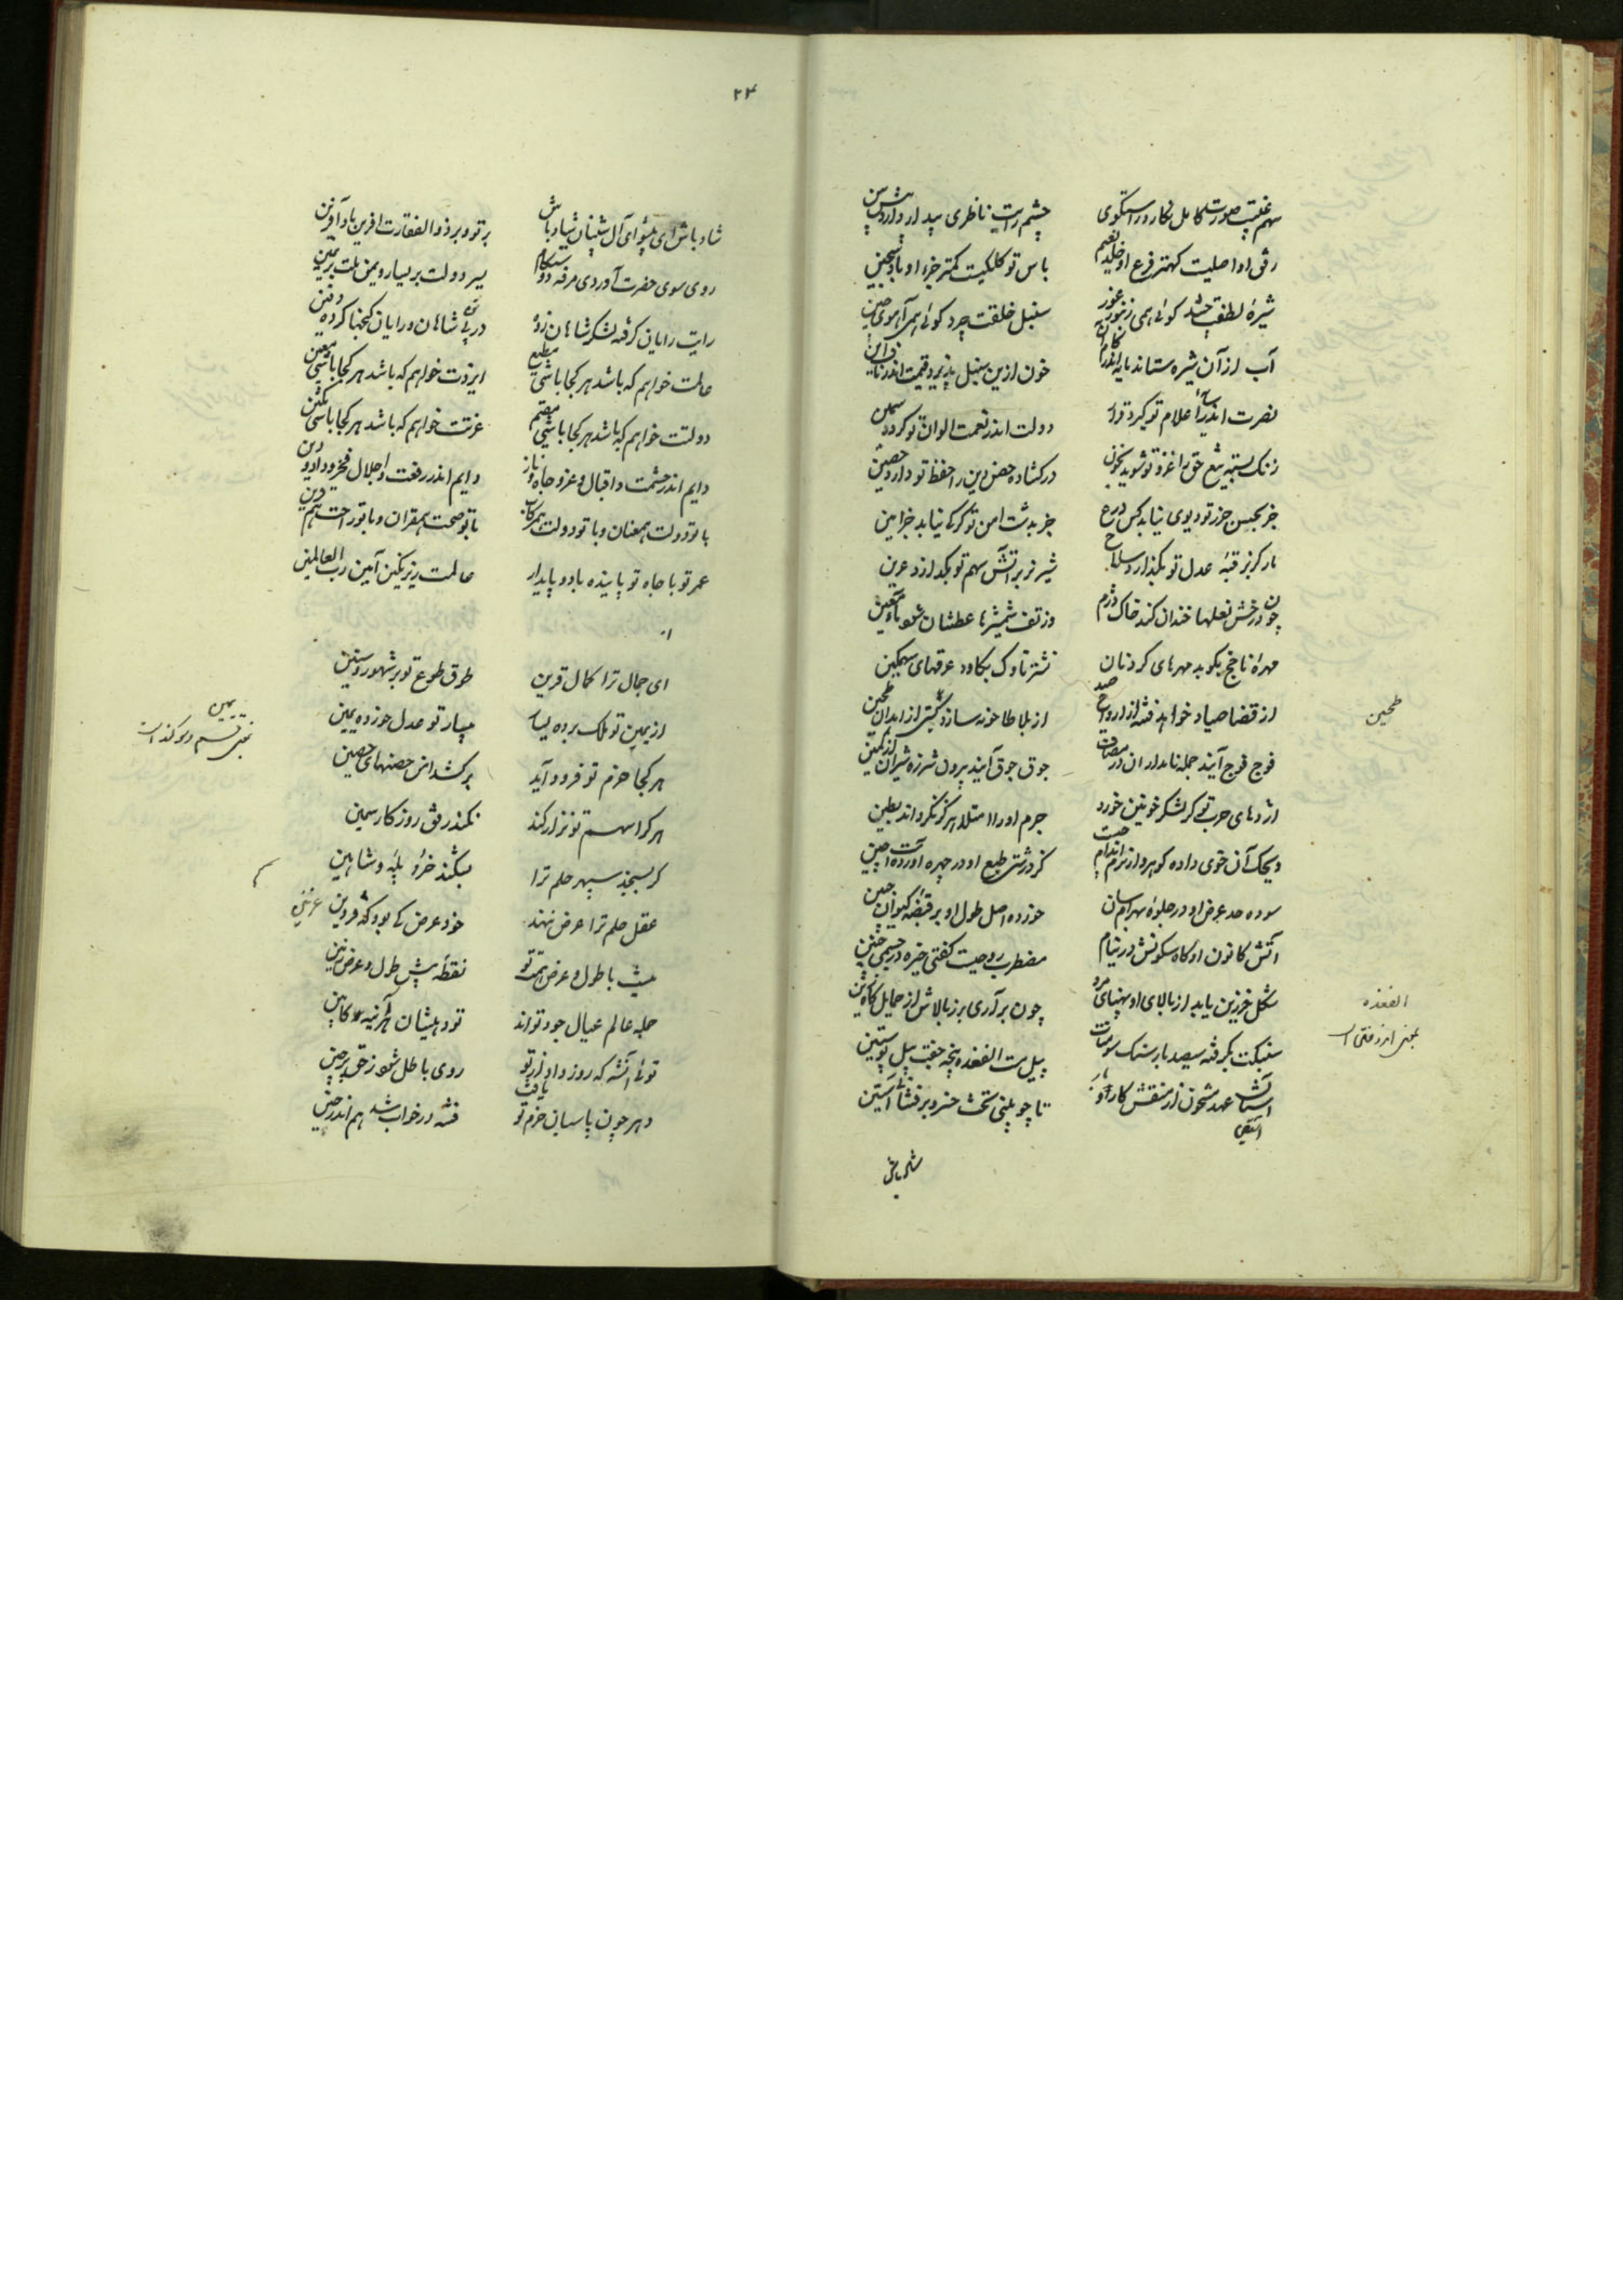 سهم غیبت صورت کامل نگارد راستگوی
چشم رایت ناظری بیدار دارد پیش بین
رفق او اصلیست کهتر فرع او خلد نعیم
باس تو کلکیست کمتر جزء او باد سجین
شیره لطفت چشد گوئی همی زنبور غور
سنبل خلقت چرد گوئی همی آهوی چین
آب از آن شیره ستاند پایه اندر
خون ازین سنبل پذیرد قیمت اندر
نصرت اندر سایه اعلام تو گیرد قرار
دولت اندر نعمت الوان تو گردد سمین
زنگ تیغ حق را غزو تو شوید بخون
در گشاده حصن دین را حفظ تو دارد حصین
جز بحبس حرز تو دیوی نیابد کس
جز بدشت امن تو گرگی نیابد خر امین
مار گرزه قبه عدل تو بگذارد سلاح
شیر نر بر آتش سهم تو بگدازد عرین
چون درخش نعلها خندان کند خاک دژم
وز تف شمشیرها عطشان شود باد معین
مهره ناچخ بکوبد مهرهای گردنان
نشتر ناوک بکاود عرقهای سهمگین
از قضا صیاد خواهد فتنه از ارواح صید
از بلا طاحونه سازد گیتی از ابدان طحین
فوج فوج آیند جمله نامداران در مصاف
جوق جوق آیند بیرون شرزه شیران از کمین
اژدهای حرب تو گر لشکر خونین خورد
جرم او را امتلا هرگز نگرداند بطین
ویحک آن خوی داده گوهر و از نرم اندام چیست
کز درشتی طبع او در چهره آورده است چین
سوده حد عرض او در جلوه بهرام سان
خورده اصل طول او بر قبضه کیوان جبین
آتش کانون او گاه سکونش در نیام
مضطرب روحیست گفتی خیره در جسمی جنین
شکل خرزین یابد از بالای او پهنای مرد
چون برآری برز بالاش از حمایل گاه زین
پیل مست الفغده پنجه جفت پیل پوستین
استانت عهد مشحون از منقش کار او
تا چو بلتی تخت خسرو بر فشاند آستین
شاد باش
طحین
الفغده
بمعنی اندوختن است
۲۴
شاد باش ای پیشوای آل شیبان شاد باش
بر تو و بر ذوالفقارت آفرین باد آفرین
روی سوی حضرت آوردی مرفه دوستکام
یسر دولت بر یسار و یمن ملت بر یمین
رایت رایان گرفته لشکر شاهان زده
در پی شاهان و رایان گنجها کرده دفین
عالمت خواهم که باشد هر کجا باشی مطیع
ایزدت خواهم که باشد هر کجا باشی معین
دولتت خواهم که باشد هر کجا باشی مقیم
عزتت خواهم که باشد هر کجا باشی مکین
دایم اندر حشمت و اقبال و عز و جاه و ناز
دایم اندر رفعت و اجلال و فخر و داد و دین
با تو دولت همعنان و با تو دولت همرکاب
با تو صحت همقران و با تو راحت همقرین
عمر تو با جاه تو پاینده باد و پایدار
عالمت زیر نگین آمین رب العالمین
ای جمال ترا کمال قرین
طوق طوع تو بر شهور و سنین
از یمین تو ملک برده یسار
بیسار تو عدل خورده یمین
هر کجا حزم تو فرود آید
بر کشد امن حصنهای حصین
هر کرا سهم تو نزار کند
نکند رفق روزگار سمین
گر بسنجد سپهر حلم ترا
بشکند خرد پله و شاهین
عقل حلم ترا عرض ننهد
خود عرض کی بود که و رزین
پیش با طول و عرض همت تو
نقطه بیش طول و عرض زمین
جمله عالم عیال جود تواند
روی باطل شود ز حق پر چین
دهر چون پاسبان حزم تو یافت
فتنه در خواب شد هم اندر حین
یمین
بمعنی قسم و سوگند است